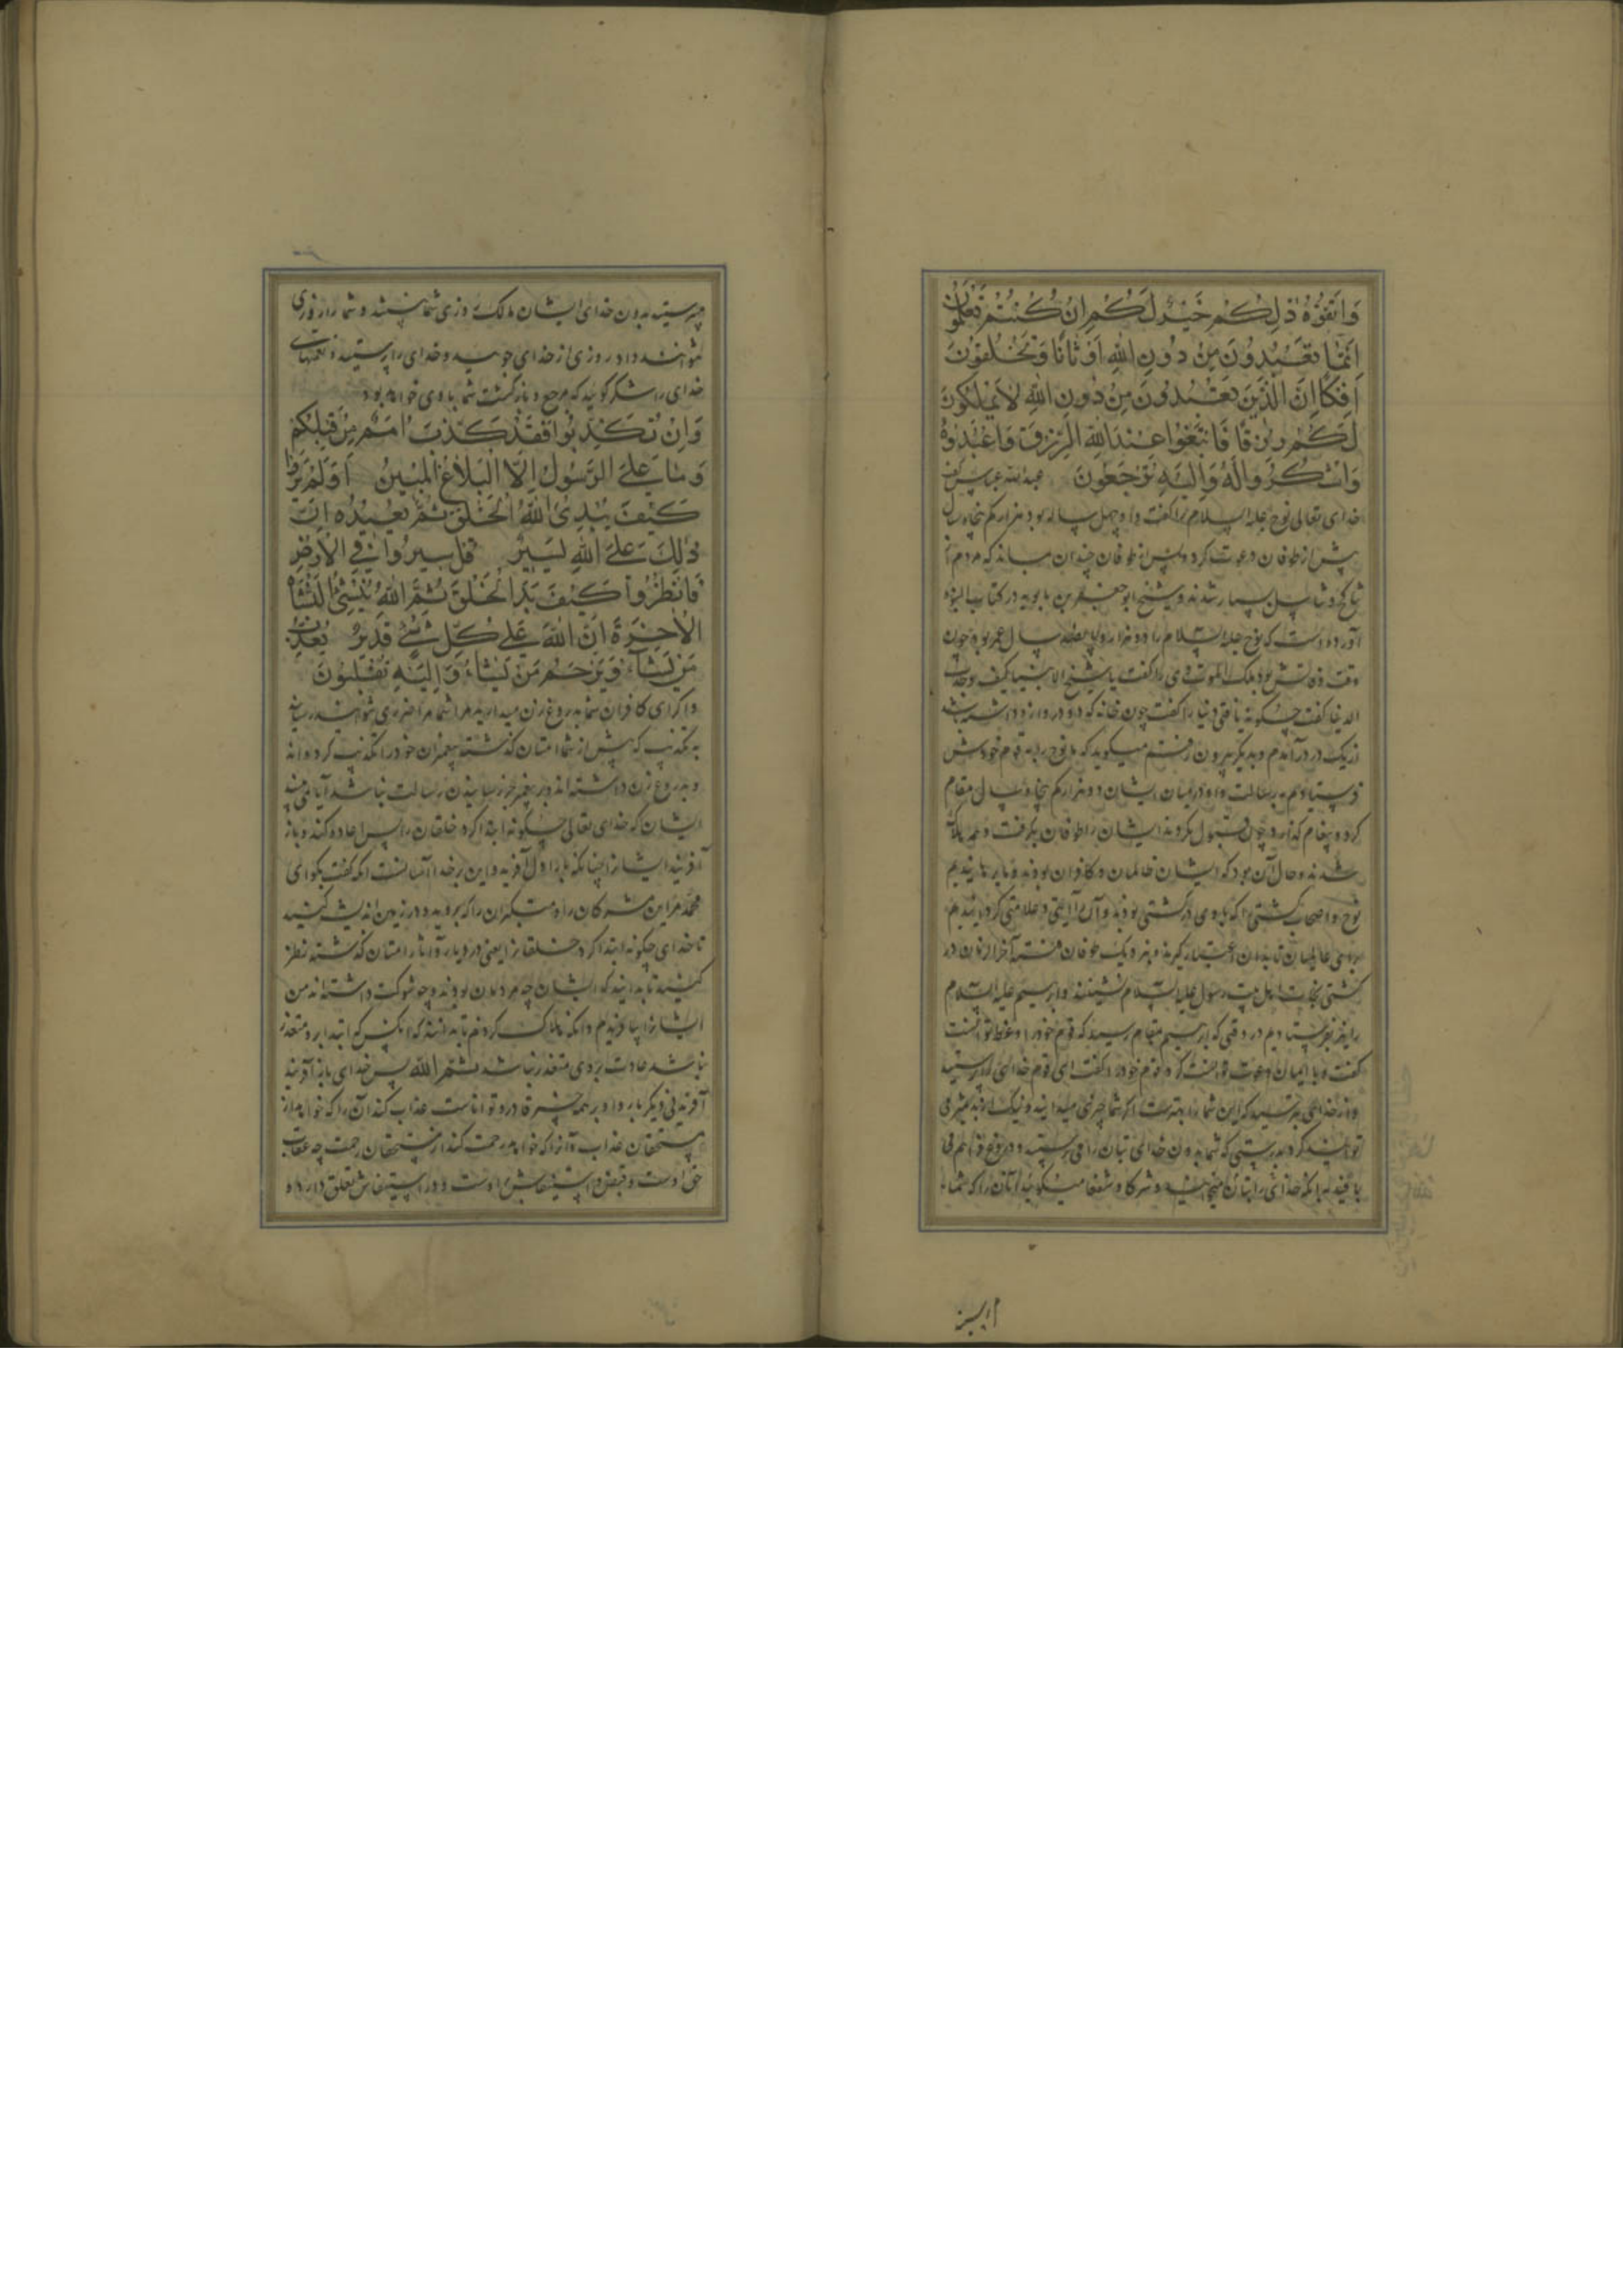 وَاتَّقُوهُ ذٰلِكُمْ خَيْرٌ لَكُمْ اِنْ كُنْتُمْ تَعْلَمُونَ
اِنَّمَا تَعْبُدُونَ مِنْ دُونِ اللّٰهِ اَوْثَانًا وَتَخْلُقُونَ
اِفْكًا اِنَّ الَّذِينَ تَعْبُدُونَ مِنْ دُونِ اللّٰهِ لَا يَمْلِكُونَ
لَكُمْ رِزْقًا فَابْتَغُوا عِنْدَ اللّٰهِ الرِّزْقَ وَاعْبُدُوهُ
وَاشْكُرُوا لَهُ وَاِلَيْهِ تُرْجَعُونَ عبدالله عباس گفت
خدای تعالی نوح علیه السلام را گفت و او چهل ساله بود هزار کم پنجاه سال
پیش از طوفان دعوت کرد و پس از طوفان چندان بماند که مردم
بسیار شدند و شیخ ابو جعفر بن بابویه در کتاب النبوه
آورده است که نوح علیه السلام را دو هزار و پانصد سال عمر بود چون
وقت وفاتش بود ملک الموت وی را گفت یا شیخ الانبیا کیف وجدت
الدنیا گفت چگونه یافتی دنیا را گفت چون خانه که دو در دارد
از یک در درآمدم و بدیگر بیرون رفتم میگوید که ما نوح را به قوم خودش
فرستادیم به رسالت و او در میان ایشان هزار کم پنجاه سال مقام
کرد و پیغام گذارد چون قبول نکردند ایشان را طوفان بگرفت و همه هلاک
شدند و حال آن بود که ایشان ظالمان و کافران بودند و ما برهانیدیم
نوح و اصحاب کشتی را که با وی در کشتی بودند و آن را آیتی و علامتی گردانیدیم
برای عالمیان تا بدان اعتبار گیرند آخر الزمان در
کشتی نجات اهل بیت رسول علیه السلام نشینند و ابرهیم علیه السلام
را نیز بفرستادیم در وقتی که ابرهیم بمقام رسید که قوم خود را وعظ توانست
گفت و با ایمان دعوت توانست کرد قوم خود را گفت ای قوم خدای را پرستید
و از خدای بترسید که این شما را بهتر است اگر شما چیزی میدانید و نیک از بد تمیز می
توانید کرد بدرستی که شما بدون خدای بتان را می پرستید و دروغ فراهم می
بافید خدای را شرکا و شفعا میگویید آنان را که شما
ابیسن
میپرستید بدون خدای ایشان مالک روزی شما نیستند و شما را روزی
نتوانند داد روزی از خدای جویید و خدای را پرستید و نعمتهای
خدای را شکر گویید که مرجع و بازگشت شما با وی خواهد بود
وَاِنْ تُكَذِّبُوا فَقَدْ كَذَّبَ اُمَمٌ مِنْ قَبْلِكُمْ
وَمَا عَلَى الرَّسُولِ اِلَّا الْبَلَاغُ الْمُبِينُ اَوَلَمْ يَرَوْا
كَيْفَ يُبْدِئُ اللّٰهُ الْخَلْقَ ثُمَّ يُعِيدُهُ اِنَّ
ذٰلِكَ عَلَى اللّٰهِ يَسِيرٌ قُلْ سِيرُوا فِي الْاَرْضِ
فَانْظُرُوا كَيْفَ بَدَأَ الْخَلْقَ ثُمَّ اللّٰهُ يُنْشِئُ النَّشْأَةَ
الْاٰخِرَةَ اِنَّ اللّٰهَ عَلٰى كُلِّ شَيْءٍ قَدِيرٌ يُعَذِّبُ
مَنْ يَشَآءُ وَيَرْحَمُ مَنْ يَشَآءُ وَاِلَيْهِ تُقْلَبُونَ
و اگر ای کافران شما بدروغ زن میدارید مرا شما مرا ضرری نتوانید رسانید
به تکذیب که پیش از شما امتان گذشته پیغمبران خود را تکذیب کرده اند
و بدروغ زن داشته اند و بر پیغمبر جز رسانیدن رسالت نباشد آیا نمی بینند
ایشان که خدای تعالی چگونه ابتدا کرد خلقان را پس اعاده کند و باز
آفریند ایشان را چنانکه بار اول آفرید و این بر خدا آسانست آنکه گفت بگو ای
محمد مر این مشرکان را و متکبران را که بروید و در زمین اندیشه کنید
تا خدای چگونه ابتدا کرد خلقان را یعنی در دیار و آثار امتان گذشته نظر
کنید تا بدانید که ایشان چه مردمان بودند و چه شوکت داشته اند من
ایشان را بیافریدم و آنگه هلاک کردم تا بدانند که آنکس که ابتدا بر و متعذر
نباشد اعادت بر وی متعذر نباشد ثُمَّ اللّٰهُ پس خدای باز آفریند
آفریدنی دیگر بار و او بر همه چیز قادر و تواناست عذاب کند آن را که خواهد از
مستحقان عذاب و آن را که خواهد رحمت کند از مستحقان رحمت چه عقاب
حق اوست و قبض و استیفاش اوست و در استیفاش تعلق دارد